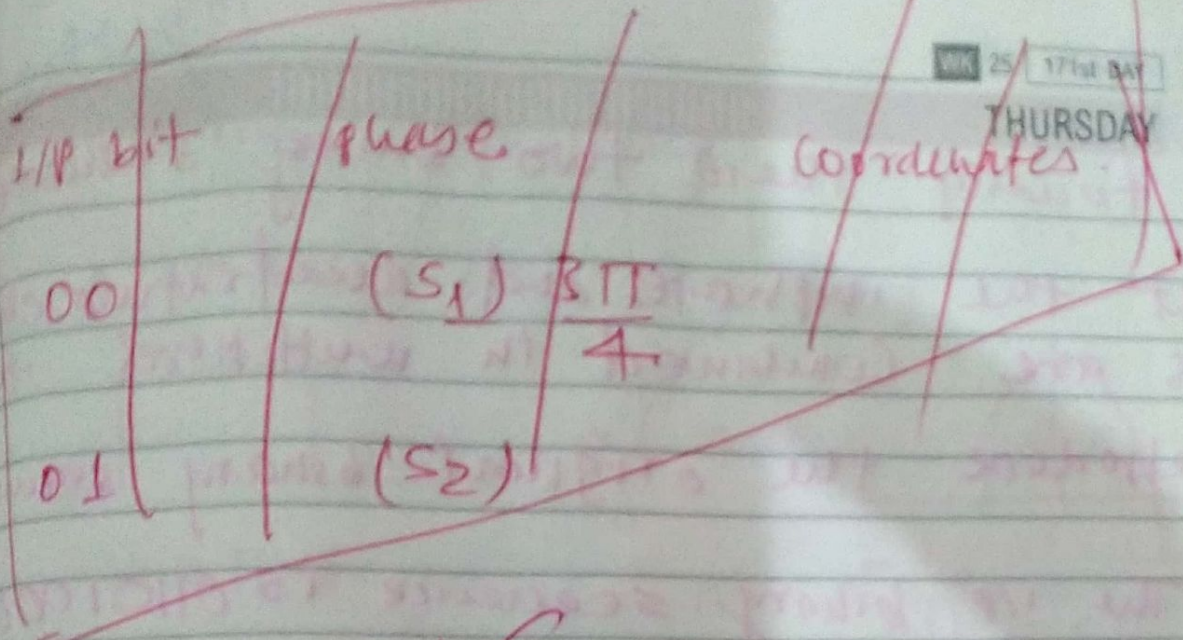 WK 25 171st DAY
THURSDAY
I/P bit phase Coordenates
00 (S1) 3π/4
01 (S2)